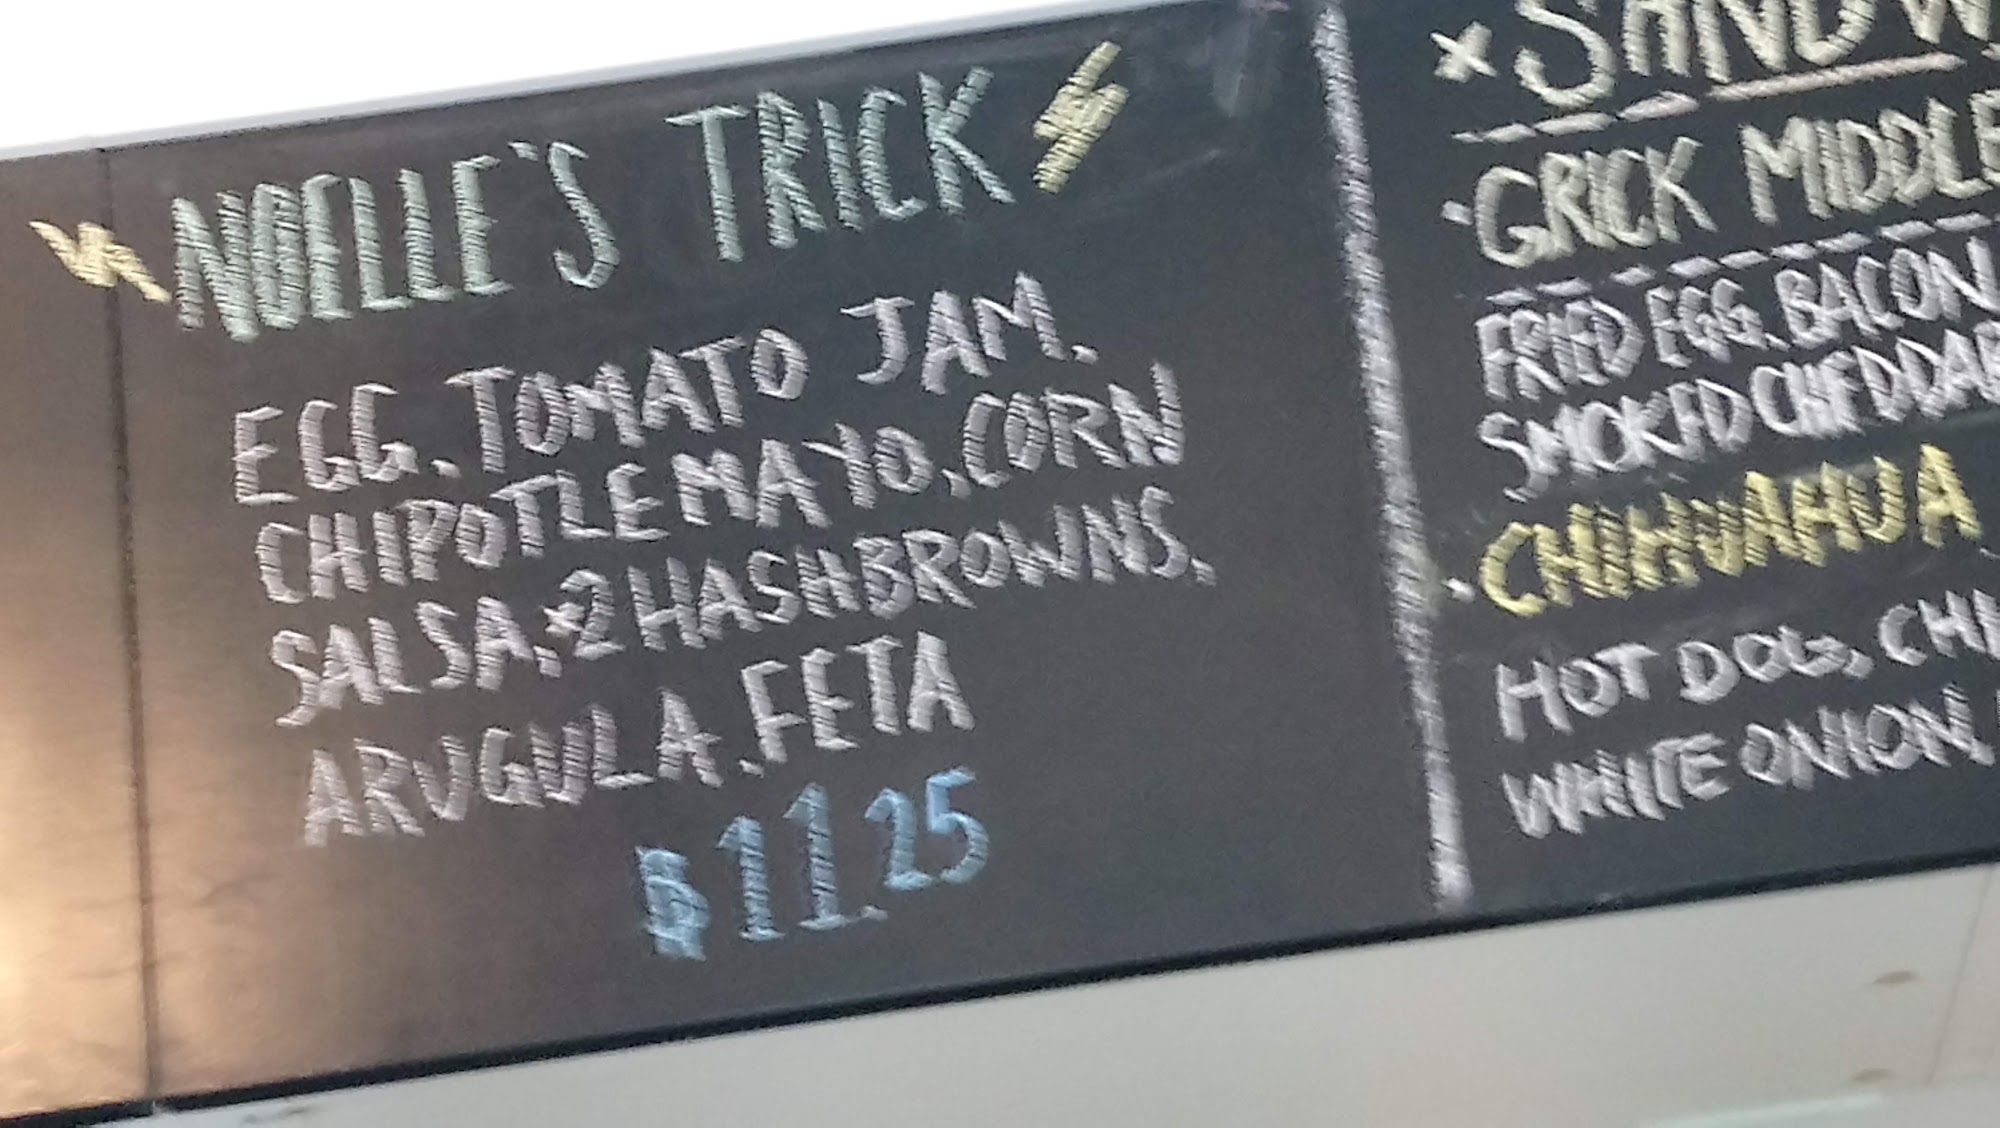 NOELLE'S TRICK
EGG, TOMATO JAM,
CHIPOTLE MAYO, CORN
SALSA, 2 HASHBROWNS,
ARUGULA, FETA
$11.25
GRICK MIDDLE
FRIED EGG, BACON,
SMOKED CHEDDAR
CHIHUAHUA
HOT DOG,
WHITE ONION,